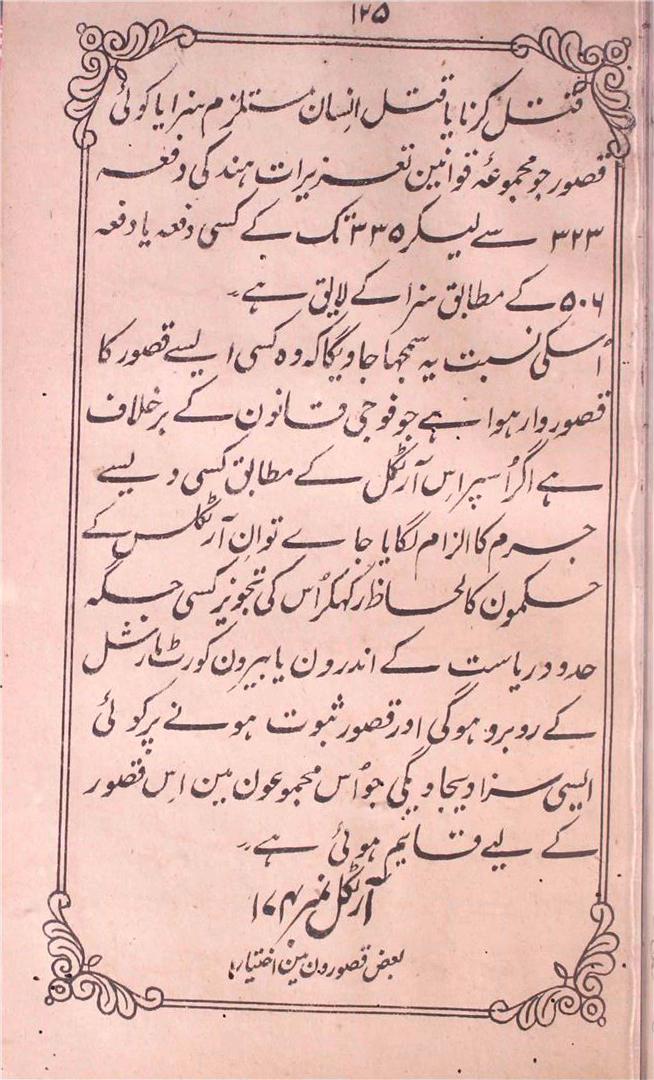 ۱۲۵
قتل کرنا یا قتل انسان مستلزم سزا یا کوئی
قصور جو مجموعۂ قوانین تعزیرات ہند کی دفعہ
۳۲۳ سے لیکر ۳۳۵ تک کے کسی دفعہ یا دفعہ
۵۰۶ کے مطابق سزا کے لایق ہے۔
اُسکی نسبت یہ سمجھا جاویگا کہ وہ کسی ایسے قصور کا
قصوروار ہوا ہے جو فوجی قانون کے برخلاف
ہے اگر اُسپر اِس آرٹکل کے مطابق کسی ویسے
جرم کا الزام لگایا جاے تو اِن آرٹکلس کے
حکمون کا لحاظ رکھکر اُس کی تجویز کسی جگہ
حدود ریاست کے اندرون یا بیرون کورٹ مارشل
کے روبرو ہوگی اور قصور ثبوت ہونے پر کوئی
ایسی سزا دیجاویگی جو اُس مجموعون مین اِس قصور
کے لیے قایم ہوئی ہے۔
آرٹکل نمبر ۱۷۴
بعض قصورون مین اختیار